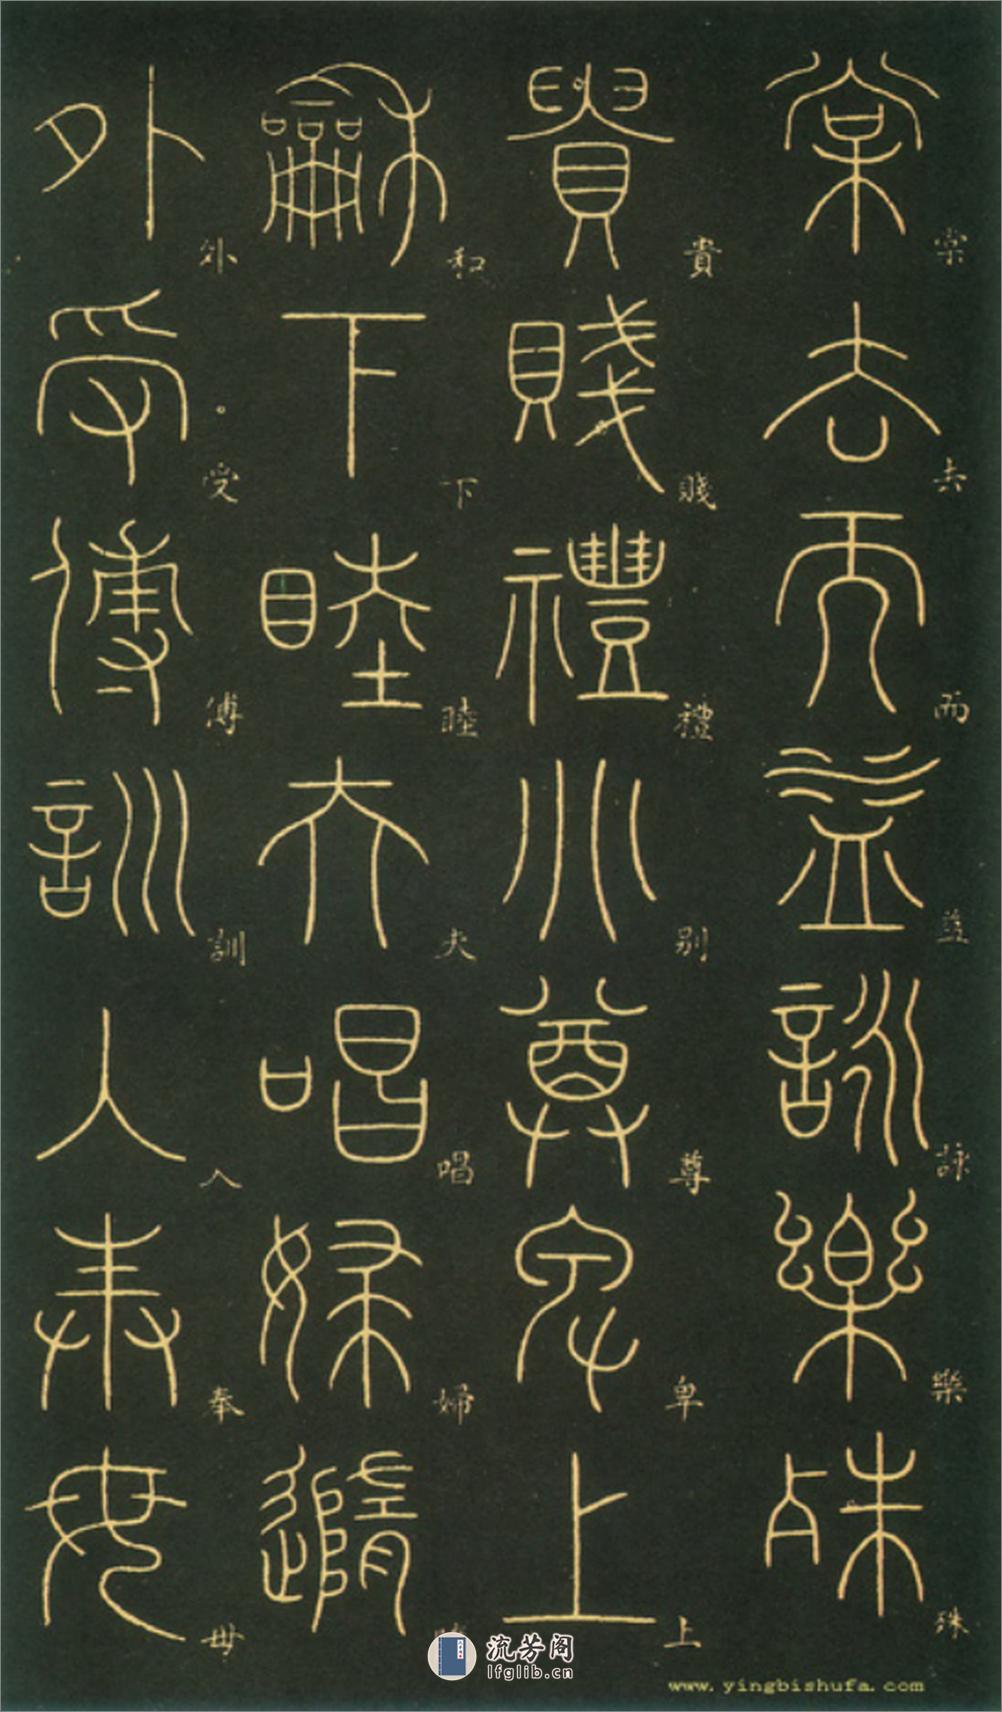 棠去而益詠樂殊
棠去而益詠樂殊
貴賤禮別尊卑上
貴賤禮别尊卑上
龢下睦夫唱婦隨
和下睦夫唱婦
外受傅訓入奉母
外受傅訓入奉母
流芳阁
lfglib.cn
www.yingbishufa.com